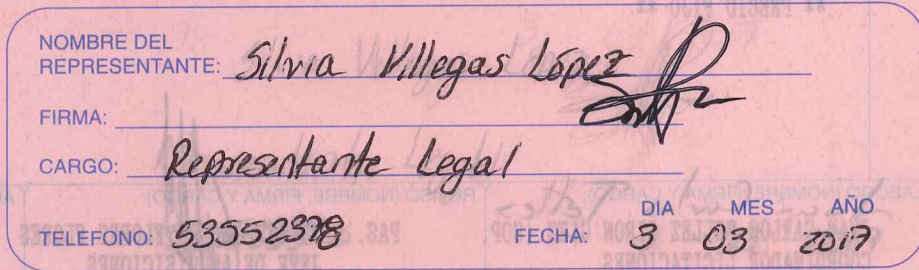 NOMBRE DEL
REPRESENTANTE: Silvia Villegas López
FIRMA:
CARGO: Representante Legal
DIA MES AÑO
TELEFONO: 53552378 FECHA: 3 03 2017